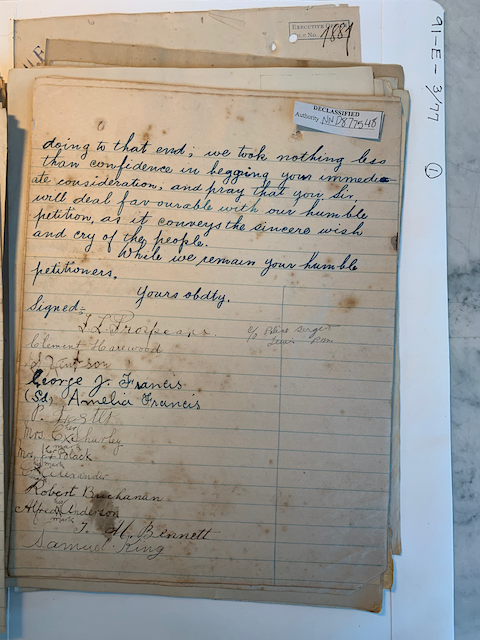 EXECUTIVE
FILE No. 1881
DECLASSIFIED
Authority NND877548
91-E-3/77
1
doing to that end; we took nothing less
than confidence in begging your immedi-
ate consideration, and pray that you Sir,
will deal favourable with our humble
petition, as it conveys the sincere wish
and cry of the people.
While we remain your humble
petitioners.
Yours obdtly.
Signed:-
c/o Police Sergt
Clement Harewood
George J. Francis
(Sd) Amelia Francis
her
Mrs. Ex Shurley
mark
Mrs. Polack
mark
Alexander
Robert Buchanan
his
Alfred Anderson
mark
T. H. Bennett
Samuel King